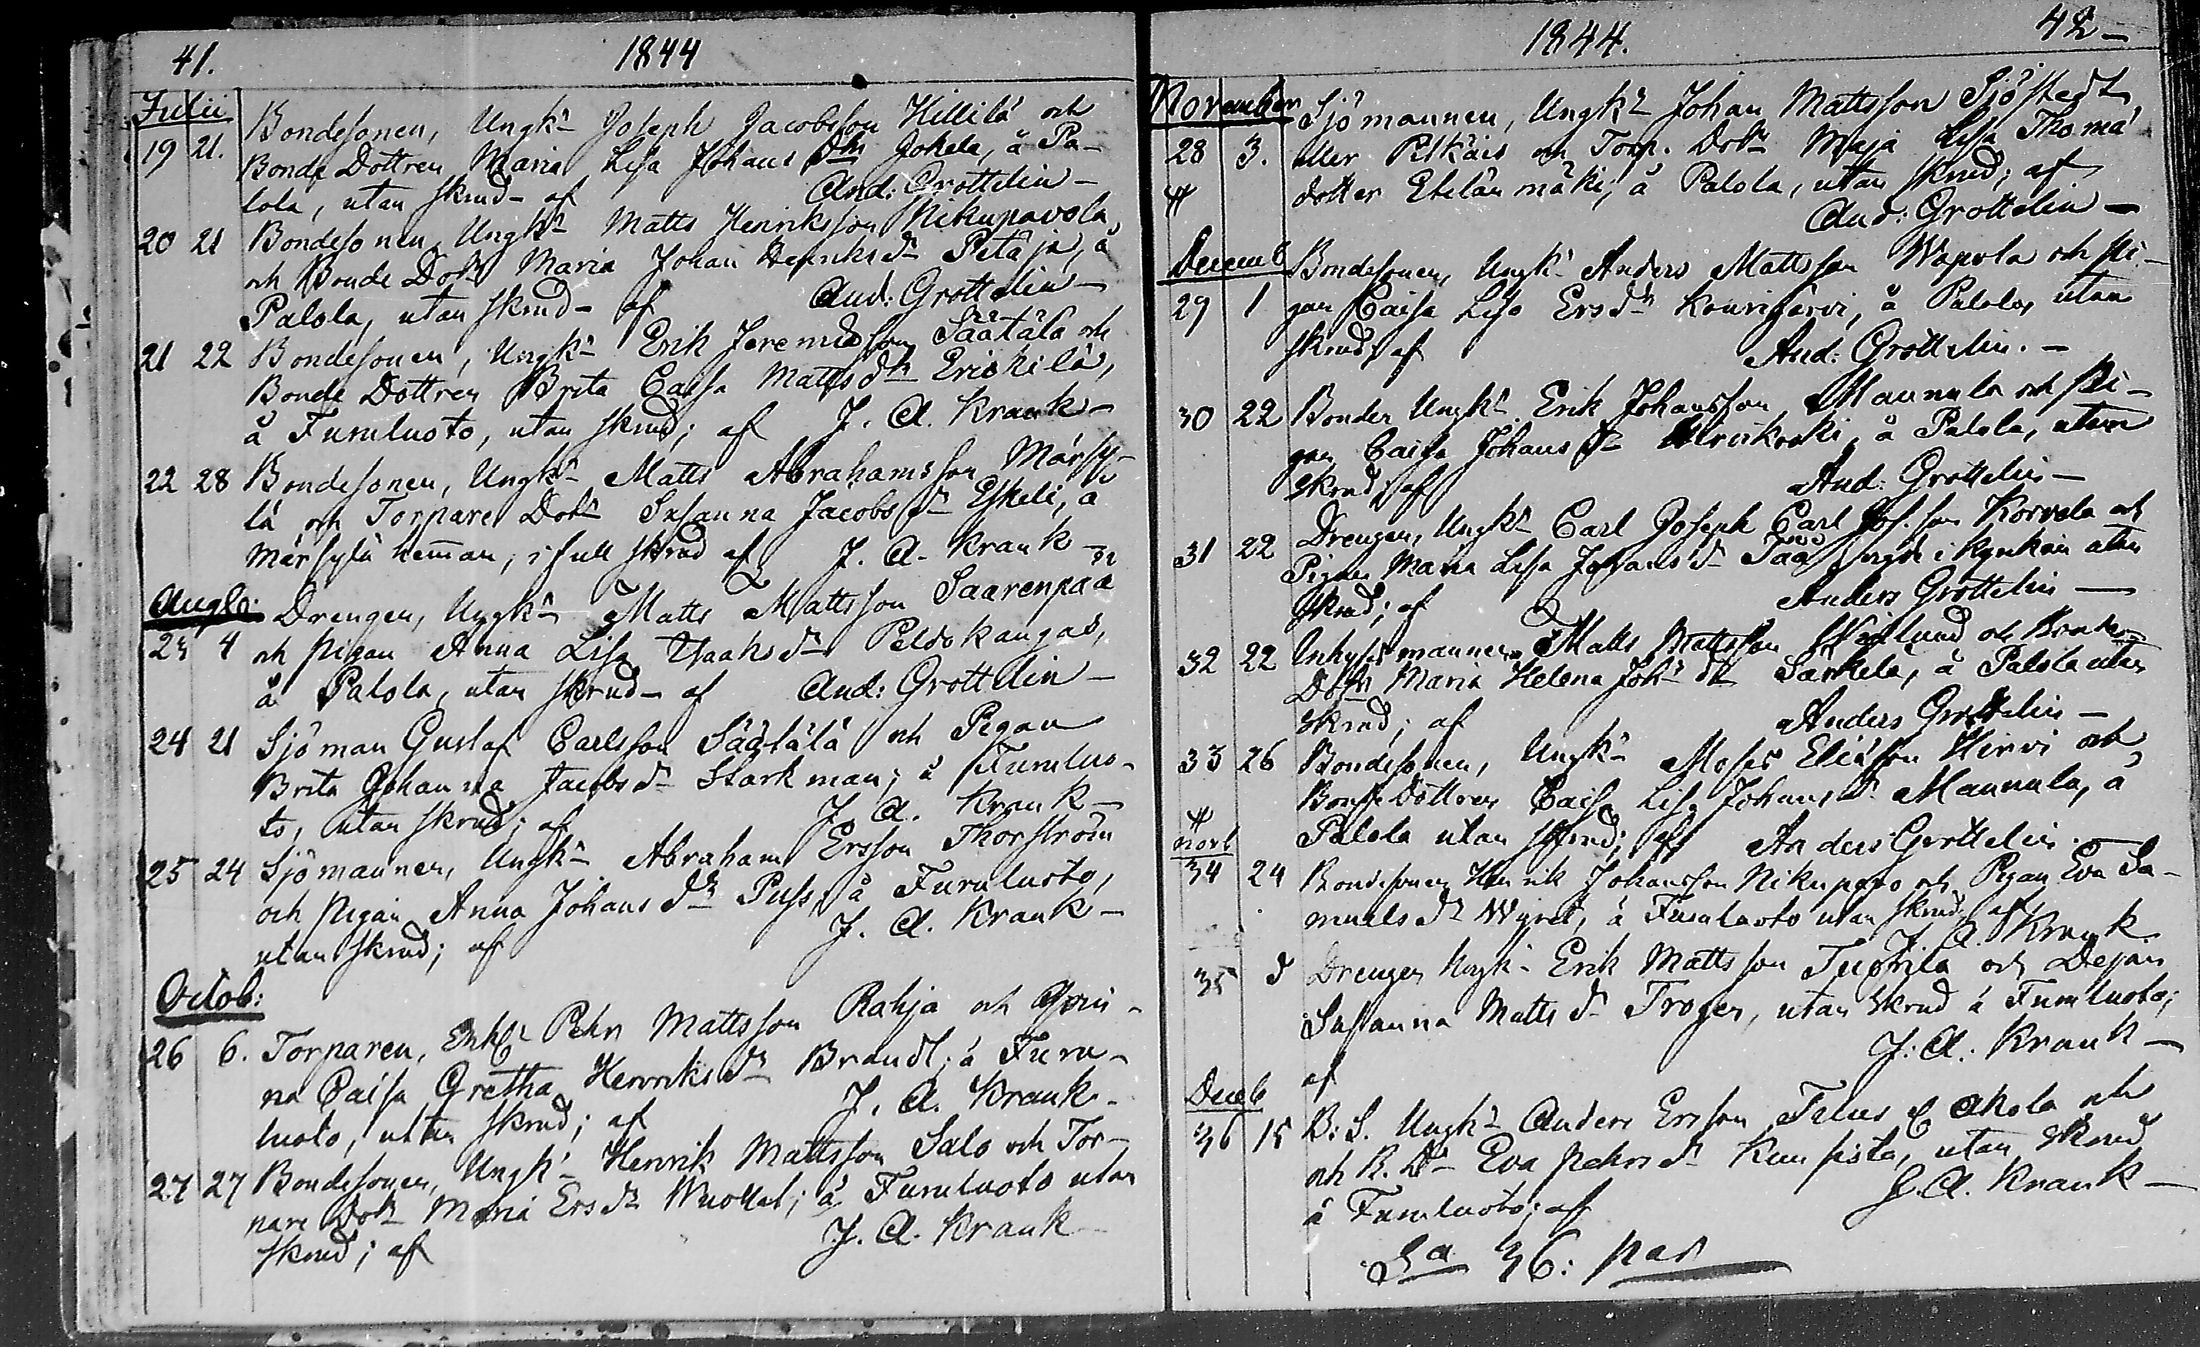 41.
1844
Julii
19 21. Bondesonen, Ungk:n Joseph Jacobsson Hillilä och
Bonde Dottren Maria Lisa Johans dtr Jokela, å Pa-
lola, utan skrud - af And: Grottelin -
20 21 Bondesonen Ungk:n Matts Henriksson Nikupavola
och Bonde Dotr Maria Johan Henriksdr Petäjä, å
Palola, utan skrud - af And: Grottelin -
21 22 Bondesonen, Ungk:n Erik Jeremiasson Säätälä och
Bonde Dottren Brita Caisa Mattsdr Erickilä,
å Furuluoto, utan skrud; af J. A. Krank -
22 28 Bondesonen, Ungk:n Matts Abrahamsson Märsy-
lä och Torpare Dotr Susanna Jacobsdr Eskeli, å
Märsylä hemman, i full skrud af J. A. Krank -
Augti: Drengen, Ungk:n Matts Mattsson Saarenpää
23 4 och Pigan Anna Lisa Isaksdr Peldokangas,
å Palola, utan skrud - af And: Grottelin -
24 21 Sjöman Gustaf Carlsson Säätälä och Pigan
Brita Johanna Jacobsdr Starkman; å Furuluo-
to, utan skrud; af J. A. Krank -
25 24 Sjömannen, Ungk:n Abraham Ersson Thorström
och Pigan Anna Johansdr Puss, å Furuluoto,
utan skrud; af J. A. Krank -
Octob:
26 6. Torparen, Enkl: Pehr Mattsson Rahja och Qvin-
na Caisa Gretha Henriksdr Brandt; å Furu-
luoto, utan skrud; af J. A. Krank -
27 27 Bondesonen, Ungk:n Henrik Mattsson Salo och Tor-
pare Dotr Maria Ersdr Wuollet; å Furuluoto utan
skrud; af J. A. Krank
1844.
42 -
November Sjömannen, Ungk:n Johan Mattsson Sjöstedt,
28 3. eller Pitkäis och Torp. Dotr Maja Lisa Thoma
dotter Etelänmäki; å Palola, utan skrud; af
And: Grottelin -
Decemb Bondesonen, Ungk:n Anders Mattsson Wapola och Pi-
29 1 gan Caisa Lisa Ersdr Kourijärvi, å Palola, utan
skrud; af And: Grottelin. -
30 22 Bonden Ungk:n Erik Johansson Mannula och Pi-
gan Caisa Johansdr å Palola, utan
skrud; af And: Grottelin -
31 22 Drengen, Ungk:n Carl Joseph Carl Jos.son Korvela och
Pigan Maria Lisa Johansdr i Kyrkan utan
skrud; af Anders Grottelin -
32 22 Inhysesmannen Matts Mattsson och Bonde
Dottr Maria Helena Joh: dtr Särkelä, å Palola utan
skrud; af Anders Grottelin -
33 26 Bondesonen, Ungk:n Moses Eliasson Hirvi och
Bonde Dottren Caisa Lisa Johansdr Mannula, å
Palola utan skrud; af Anders Grottelin. -
Novb
34 24 Bondesonen Henrik Johansson Nikupavo och Pigan Eva Sa-
muelsdr Wyret, å Furuluoto utan skrud, af
J. A. Krank
35 d Drengen Ungk:n Erik Mattsson Tuorila och Dejan
Susanna Mattsdr Troger, utan skrud å Furuluoto;
af J: A: Krank -
Decb
36 15 B: S. Ungk:n Anders Ersson Filus Ahola och
och B. Dr Eva Pehrsdr Kurpista, utan skrud
å Furuluoto; af J. A. Krank -
Sa 36: par